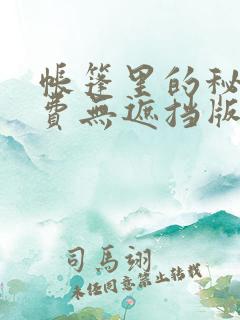 帳篷里的秘
費無遮挡版
司馬翊
未任同意禁止转载